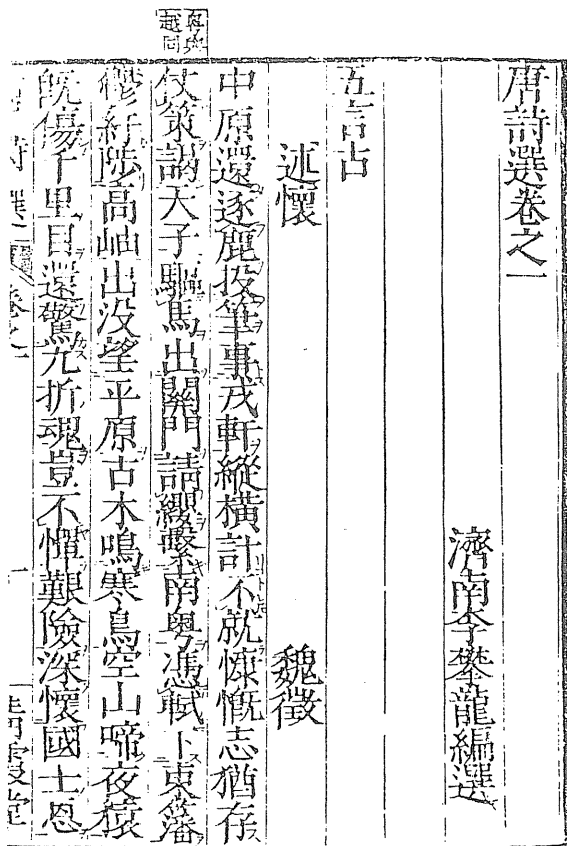 唐詩選卷之一
濟南李攀龍編選
五言古
述懷 魏徵
中原還逐鹿投筆事戎軒縱橫計不就慷慨志猶存
粤與越同
仗策謁天子驅馬出關門請纓繫南粤憑軾下東藩
鬱紆陟高岫出没望平原古木鳴寒鳥空山啼夜猿
既傷千里目還驚九折魂豈不憚艱險深懷國士恩
詩選 卷之一 一